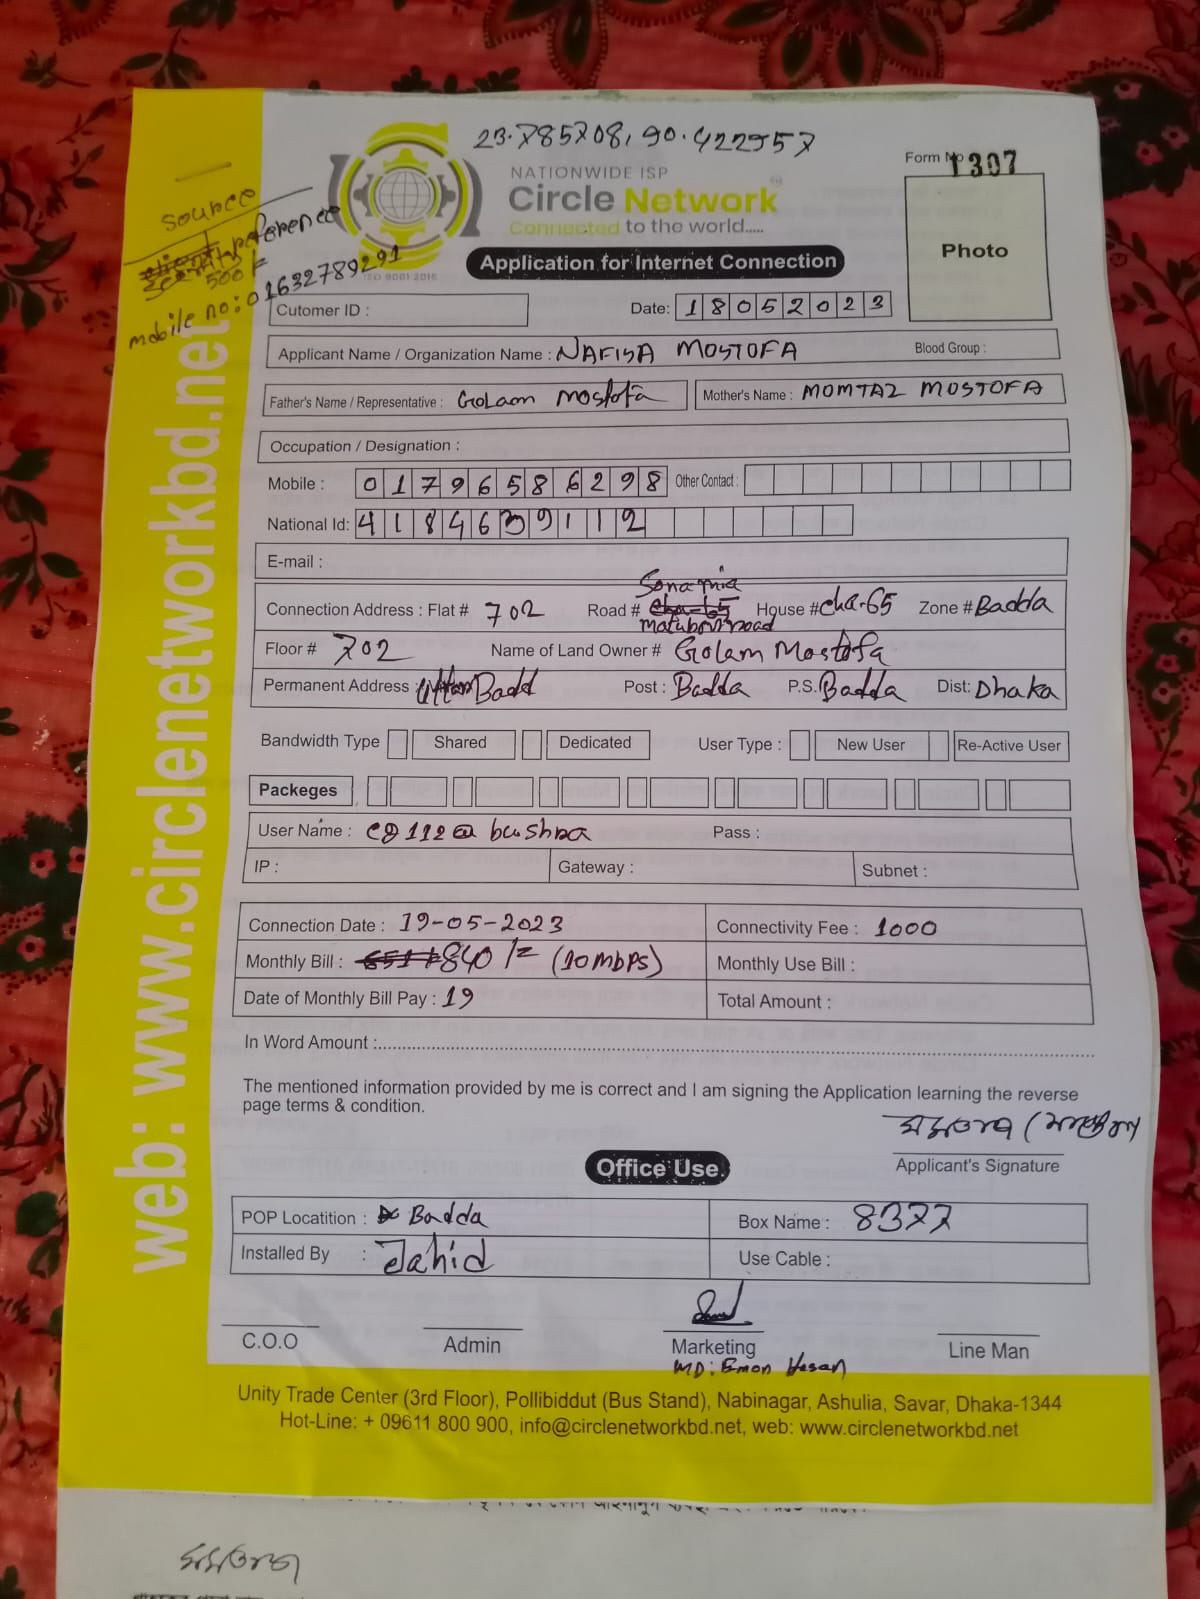 23.785708, 90.422957
NATIONWIDE ISP
Circle Network
Connected to the world.....
ISO 9001 2015
Form No 1307
Photo
source
reference
500/=
mobile no: 01632789291
Application for Internet Connection
Cutomer ID :
Date: 18052023
Applicant Name / Organization Name : NAFISA MOSTOFA Blood Group :
Father's Name / Representative : Golam Mostofa Mother's Name : MOMTAZ MOSTOFA
Occupation / Designation :
Mobile : 01796586298 Other Contact :
National Id: 4184639112
E-mail :
Connection Address : Flat # 702 Road # Sona mia matubbri road House # cha-65 Zone # Badda
Floor # 702 Name of Land Owner # Golam Mostofa
Permanent Address : Uttar Badd Post : Badda P.S. Badda Dist: Dhaka
Bandwidth Type Shared Dedicated User Type : New User Re-Active User
Packeges
User Name : cg112@bushra Pass :
IP : Gateway : Subnet :
Connection Date : 19-05-2023 Connectivity Fee : 1000
Monthly Bill : 840/= (10mbps) Monthly Use Bill :
Date of Monthly Bill Pay : 19 Total Amount :
In Word Amount :
The mentioned information provided by me is correct and I am signing the Application learning the reverse
page terms & condition.
Applicant's Signature
Office Use.
POP Locatition : Badda Box Name : 8377
Installed By : Jahid Use Cable :
C.O.O Admin Marketing Line Man
MD: Emon Hasan
Unity Trade Center (3rd Floor), Pollibiddut (Bus Stand), Nabinagar, Ashulia, Savar, Dhaka-1344
Hot-Line: + 09611 800 900, info@circlenetworkbd.net, web: www.circlenetworkbd.net
web: www.circlenetworkbd.net